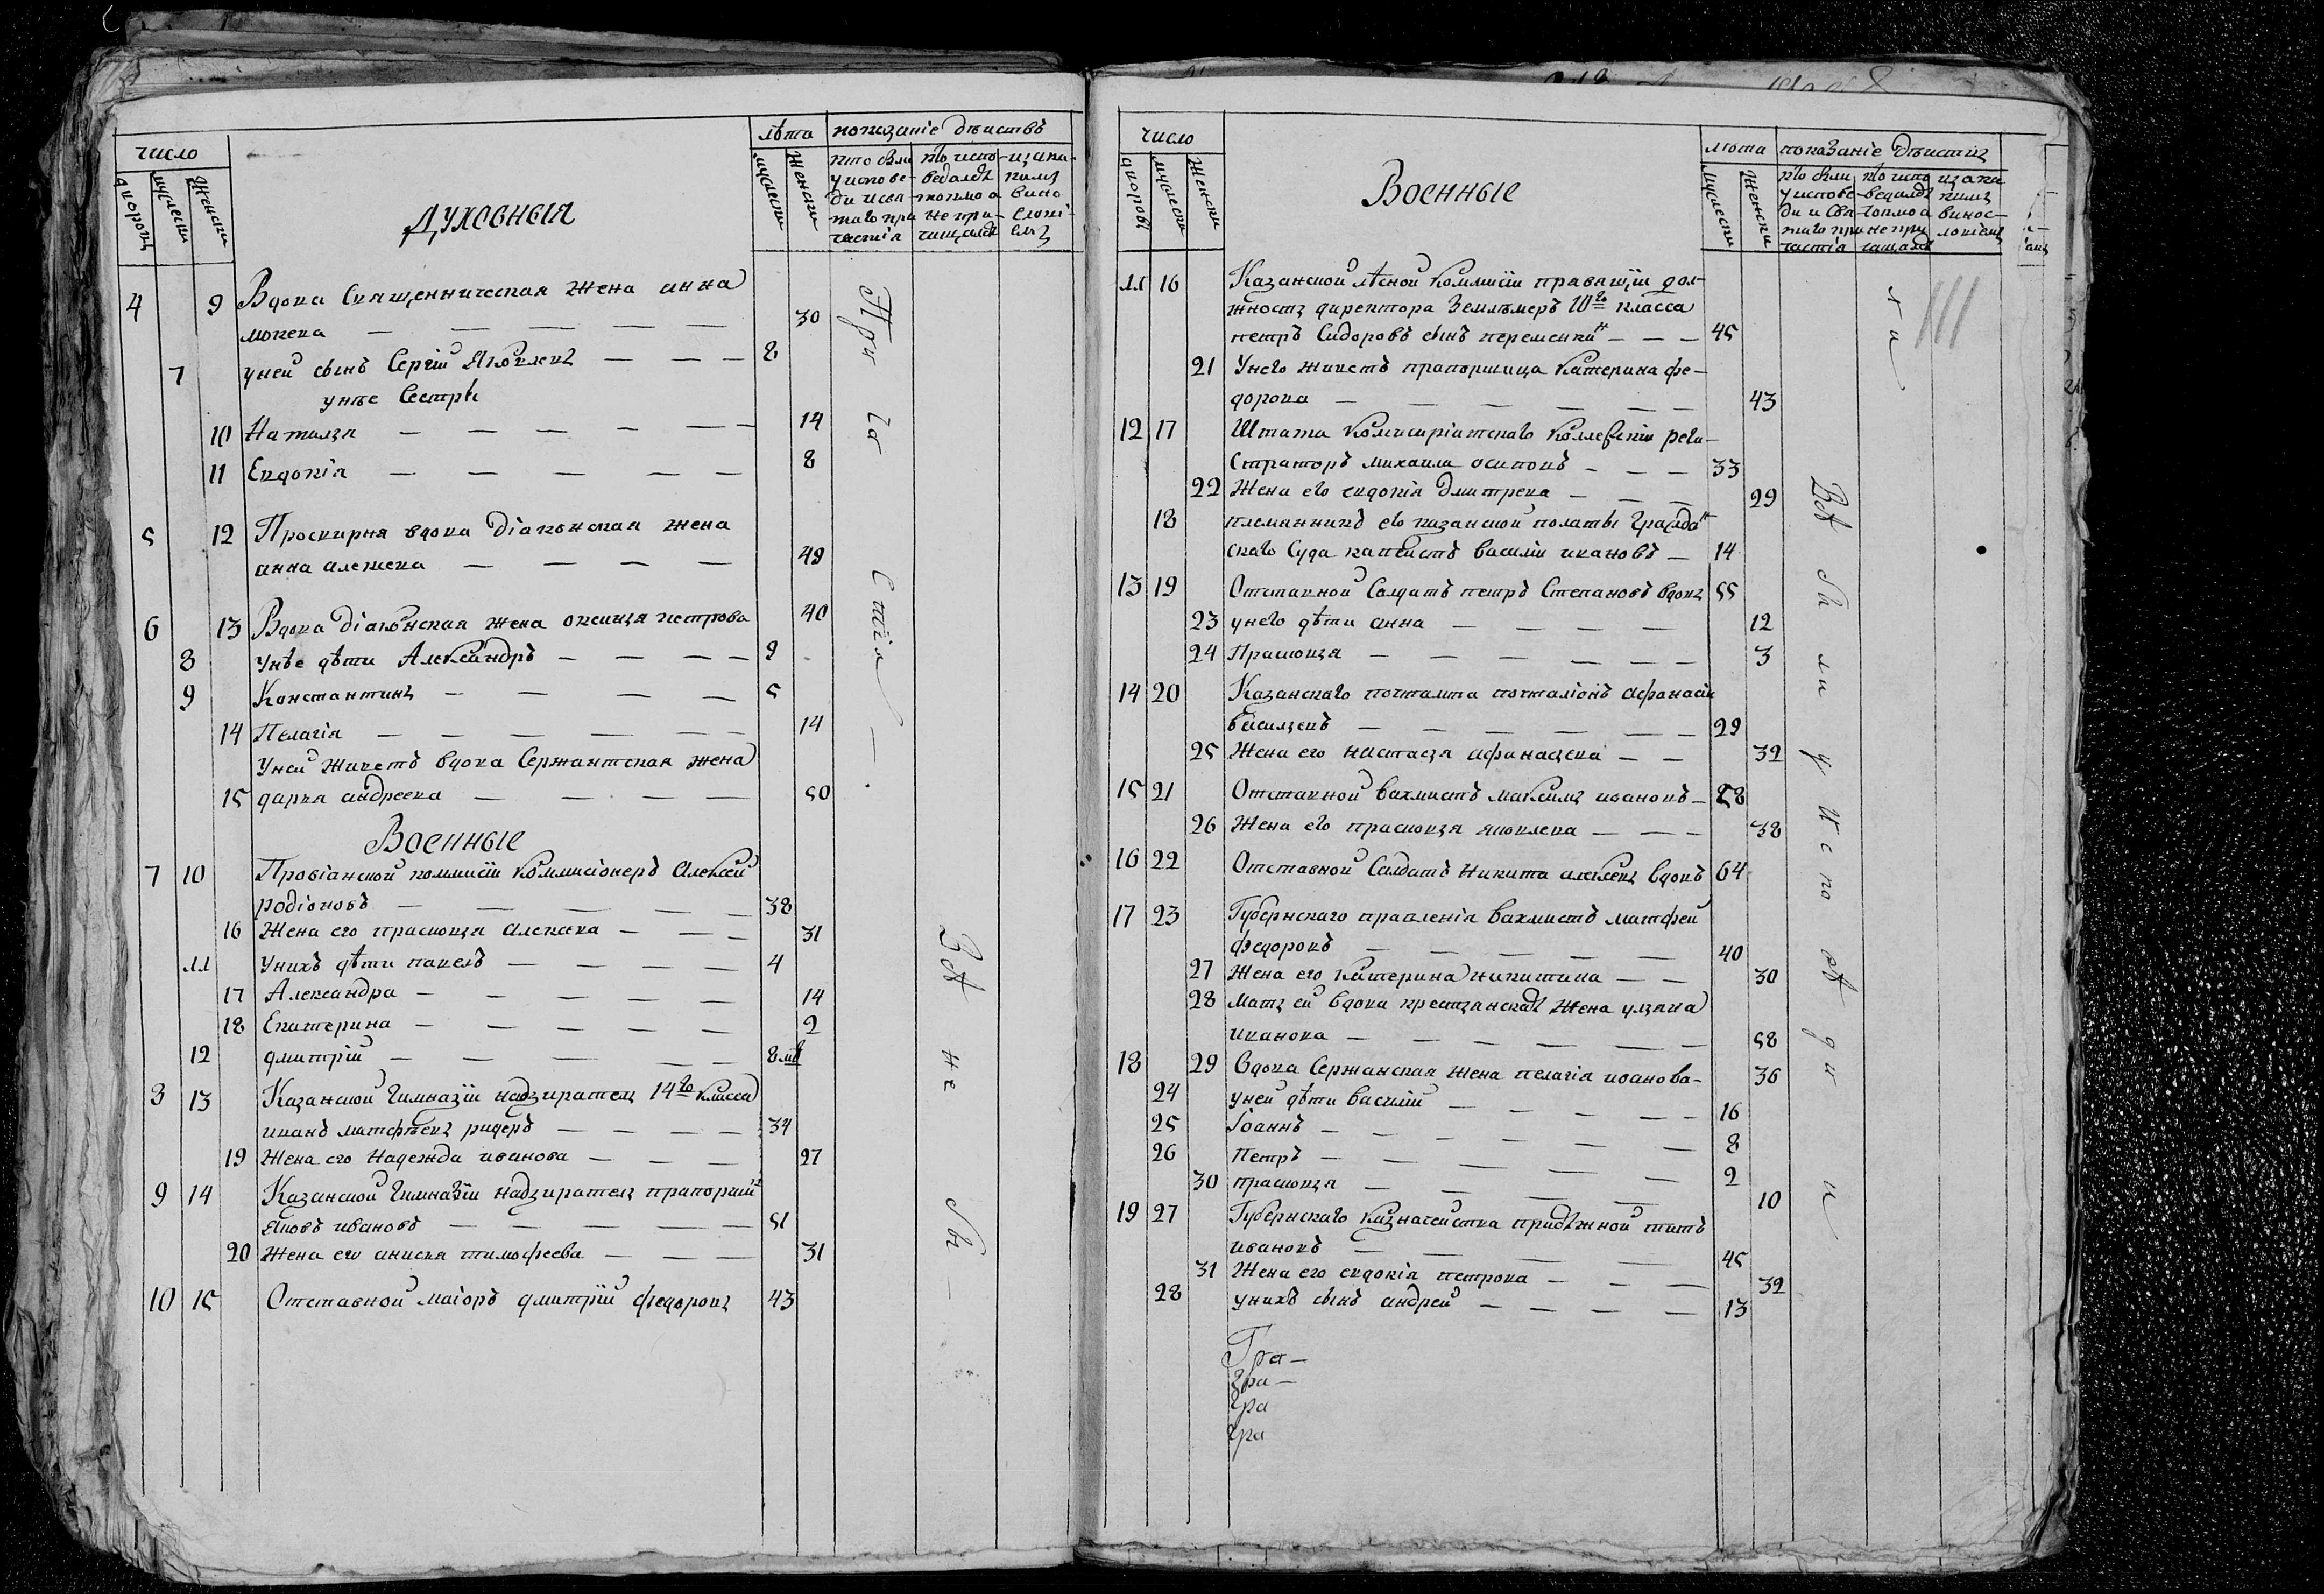 число
дворовъ
мужески
женски
Духовныя
лѣта
мужески
женски
показаніе дѣиствъ
кто были
у испове-
ди и свя-
таго при
частія
кто испо-
ведался
токмо а
не при-
чащался
и зака-
кимъ
вино
словi-
емъ
4 9 Вдова Священническая жена анна
мокева — — — — — 30
7 унеи сынъ Сергіи Яковлевъ — — — 8
унѣе Сестры
10 Наталья — — — — — — 14
11 Евдокія — — — — — 8
5 12 Проскирня вдова Діаконская жена
анна алекеева — — — — 49
6 13 Вдова діаконская жена оксинья петрова 40
8 Унѣе дѣти Александръ — — — — 9
9 Константинъ — — — — 5
14 Пелагія — — — — — — 14
Унеи живетъ вдова Сержантская жена
15 дарья андреева — — — — 50
Военные
7 10 Провіанской коммисіи Коммисіонеръ Алексеи
родіоновъ — — — — — — 38
16 Жена его прасковья Алексева — — — 31
11 Унихъ дѣти павелъ — — — — 4
17 Александра — — — — — — 14
18 Екатерина — — — — — — 2
12 дмитріи — — — — — 8 мѣ
8 13 Казанскои Гимназіи надзиратель 14го Класса
иванъ матфѣевъ ридеръ — — — — 34
19 Жена его Надежда иванова — — — 27
9 14 Казанскои Гимназіи надзиратель прапорщи
Яковъ ивановъ — — — — — 51
20 Жена его анисья тимофеева — — — 31
10 15 Отставнои маіоръ дмитріи федоровъ 43
При
ча
стія —
Всѣ
не
бы —
число
дворовъ
мужески
женски
Военные
лѣта
мужески
женски
показаніе дѣистиъ
кто были
у испове-
ди и свя-
таго при
частія
кто испо
ведался
токмо а
не при
чащался
и зака
кимъ
винос-
ловіемъ
11 16 Казанскои лѣснои Коммисіи правящіи дол-
жность директора Землѣмеръ 10го класса
петръ Сидоровъ сынъ перемски — — — 45
21 Унего живетъ прапорщица Катерина фе-
дорова — — — — — — 43
12 17 Штата Комисиріатскаго Коллежскіи реги-
страторъ михаила осиповъ — — — 33
22 Жена его евдокія дмитрева — — — 29
18 племянникъ его казанскои полаты гражда н
скаго Суда капеистъ василіи ивановъ — 14
13 19 Отставнои Салдатъ петръ Степановъ вдовъ 55
23 унего дѣти анна — — — — 12
24 Прасковья — — — — — — 3
14 20 Казанскаго почтамта почталіонъ афонасіи
василъевъ — — — — — — 29
25 Жена его настасья афанасева — — 32
15 21 Отставнои вахмистъ максимъ ивановъ — 58
26 Жена его прасковья яковлева — — — 38
16 22 Отставнои Салдатъ Никита алексеевъ вдовъ 64
17 23 Губернскаго правленія вахмистъ матфеи
федоровъ — — — — — 40
27 Жена его Катерина никитина — — 30
28 Мать еи вдова крестьянская Жена ульяна
иванова — — — — — — 58
18 29 вдова Сержанская жена пелагія иванова — 36
24 унеи дѣти василіи — — — — — 16
25 Іоаннъ — — — — — — 8
26 Петръ — — — — — 2
30 прасковья — — — — — 10
19 27 Губернскаго Казначеиства присѣжнои титъ
ивановъ — — — — 45
31 Жена его евдокія петрова — — — 32
28 унихъ сынъ андреи — — — — 13
Гра—
гра—
гра
гра
Всѣ
бы
ли
у
испо
вѣ
ди
и